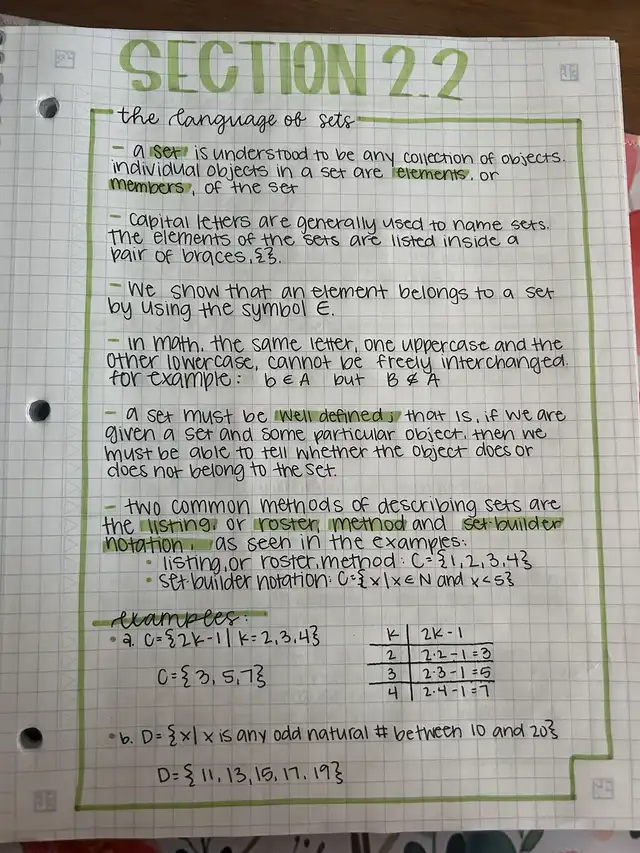 SECTION 2.2
the language of sets
- a set is understood to be any collection of objects.
individual objects in a set are elements, or
members, of the set
- capital letters are generally used to name sets.
The elements of the sets are listed inside a
pair of braces, {}.
- We show that an element belongs to a set
by using the symbol ∈.
- in math, the same letter, one uppercase and the
other lowercase, cannot be freely interchanged.
for example: b ∈ A but B ∉ A
- a set must be well defined; that is, if we are
given a set and some particular object, then we
must be able to tell whether the object does or
does not belong to the set.
- two common methods of describing sets are
the listing, or roster, method and set-builder
notation, as seen in the examples:
• listing, or roster, method: C={1,2,3,4}
• set-builder notation: C={x|x∈N and x<5}
examples:
• a. C={2k-1|k=2,3,4}
C={3,5,7}
k 2k-1
2 2·2-1=3
3 2·3-1=5
4 2·4-1=7
• b. D={x|x is any odd natural # between 10 and 20}
D={11,13,15,17,19}